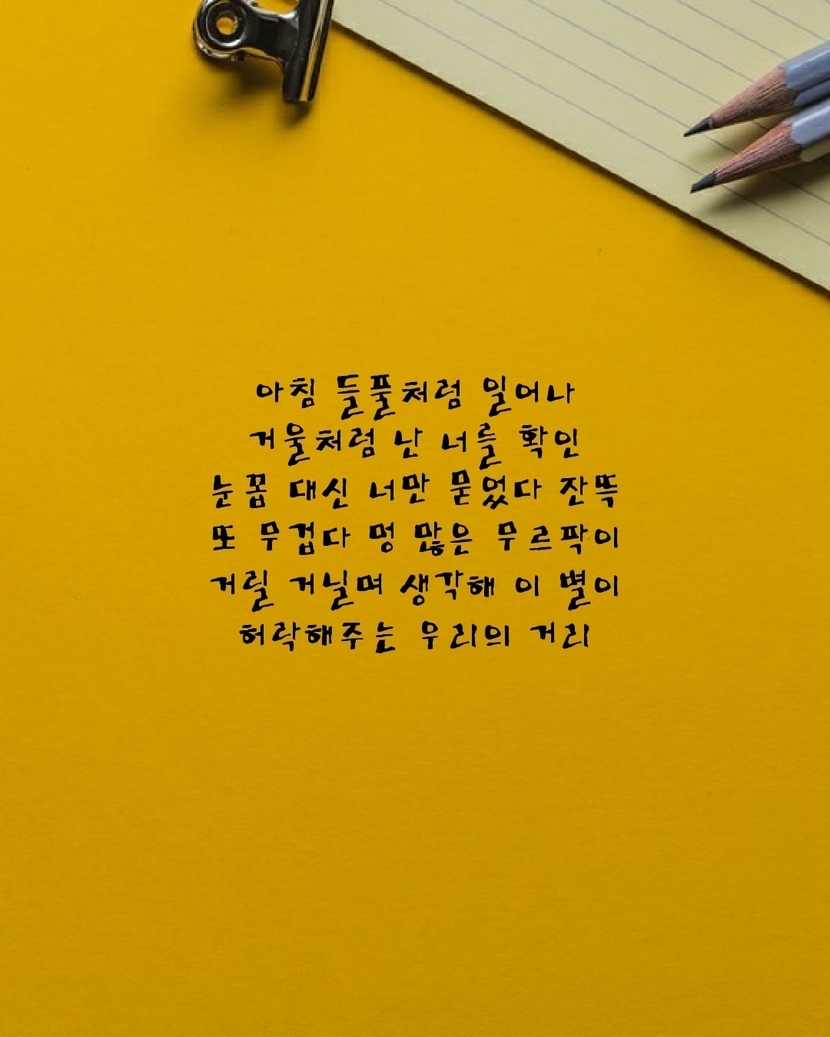 아침 들풀처럼 일어나
거울처럼 난 너를 확인
눈꼽 대신 너만 묻었다 잔뜩
또 무겁다 멍 많은 무르팍이
거릴 거닐며 생각해 이 별이
허락해주는 우리의 거리